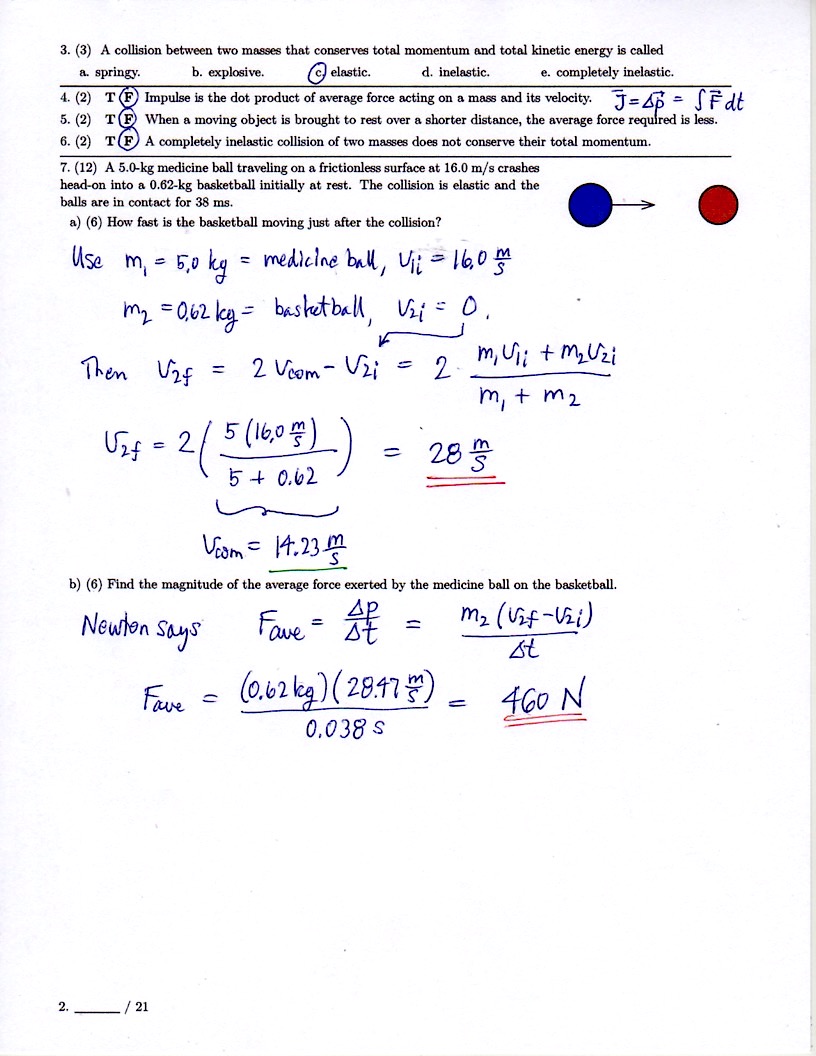 3. (3) A collision between two masses that conserves total momentum and total kinetic energy is called
a. springy. b. explosive. c. elastic. d. inelastic. e. completely inelastic.
4. (2) T F Impulse is the dot product of average force acting on a mass and its velocity. J⃗ = Δp⃗ = ∫ F⃗ dt
5. (2) T F When a moving object is brought to rest over a shorter distance, the average force required is less.
6. (2) T F A completely inelastic collision of two masses does not conserve their total momentum.
7. (12) A 5.0-kg medicine ball traveling on a frictionless surface at 16.0 m/s crashes
head-on into a 0.62-kg basketball initially at rest. The collision is elastic and the
balls are in contact for 38 ms.
a) (6) How fast is the basketball moving just after the collision?
Use m₁ = 5.0 kg = medicine ball, v₁ᵢ = 16.0 m/s
m₂ = 0.62 kg = basketball, v₂ᵢ = 0.
Then v₂f = 2 Vcom - V₂ᵢ = 2 · (m₁v₁ᵢ + m₂v₂ᵢ) / (m₁ + m₂)
v₂f = 2 ( 5 (16.0 m/s) / (5 + 0.62) ) = 28 m/s
Vcom = 14.23 m/s
b) (6) Find the magnitude of the average force exerted by the medicine ball on the basketball.
Newton says Fave = Δp/Δt = m₂ (v₂f - v₂ᵢ) / Δt
Fave = (0.62 kg)(28.47 m/s) / 0.038 s = 460 N
2. ______ / 21